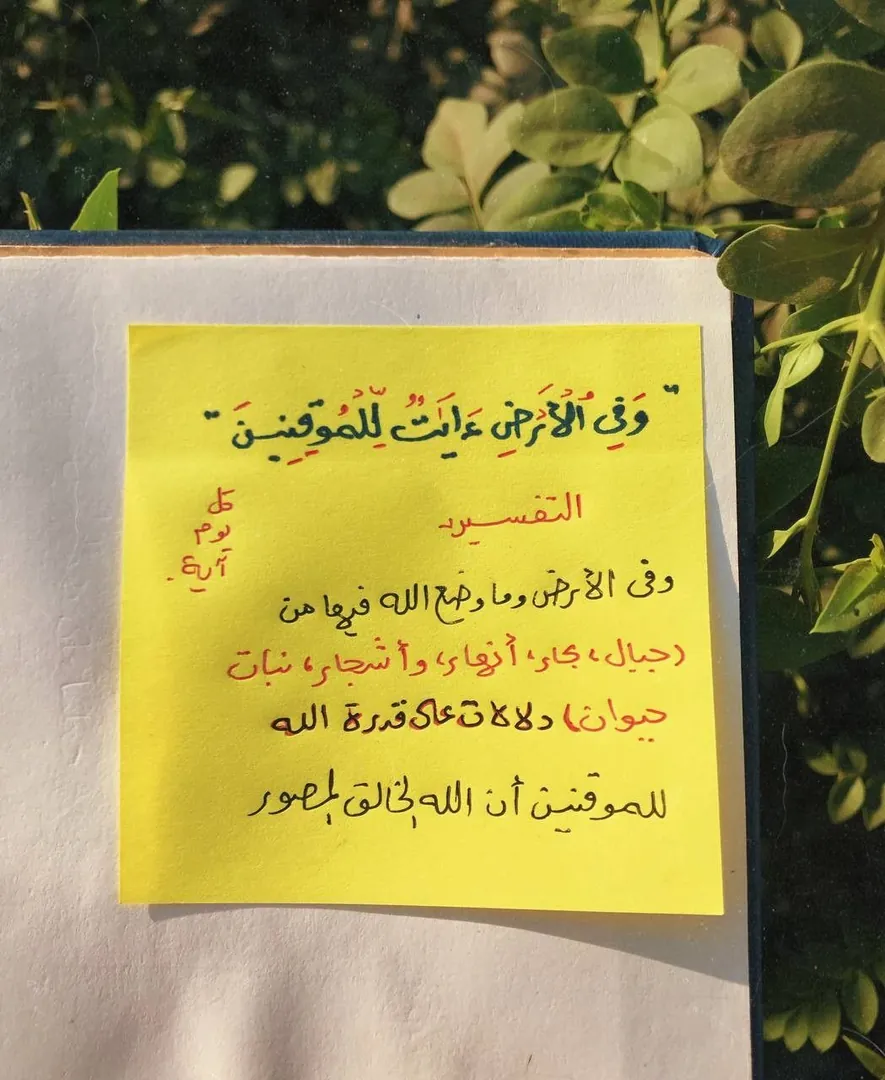 " وَفِى ٱلْأَرْضِ ءَايَٰتٌ لِّلْمُوقِنِينَ "
التفسير
كل
يوم
آية
وفى الأرض وما وضع الله فيها من
(جبال، بحار، أنهار، وأشجار، نبات
حيوان) دلالات على قدرة الله
للموقنين أن الله الخالق المصور